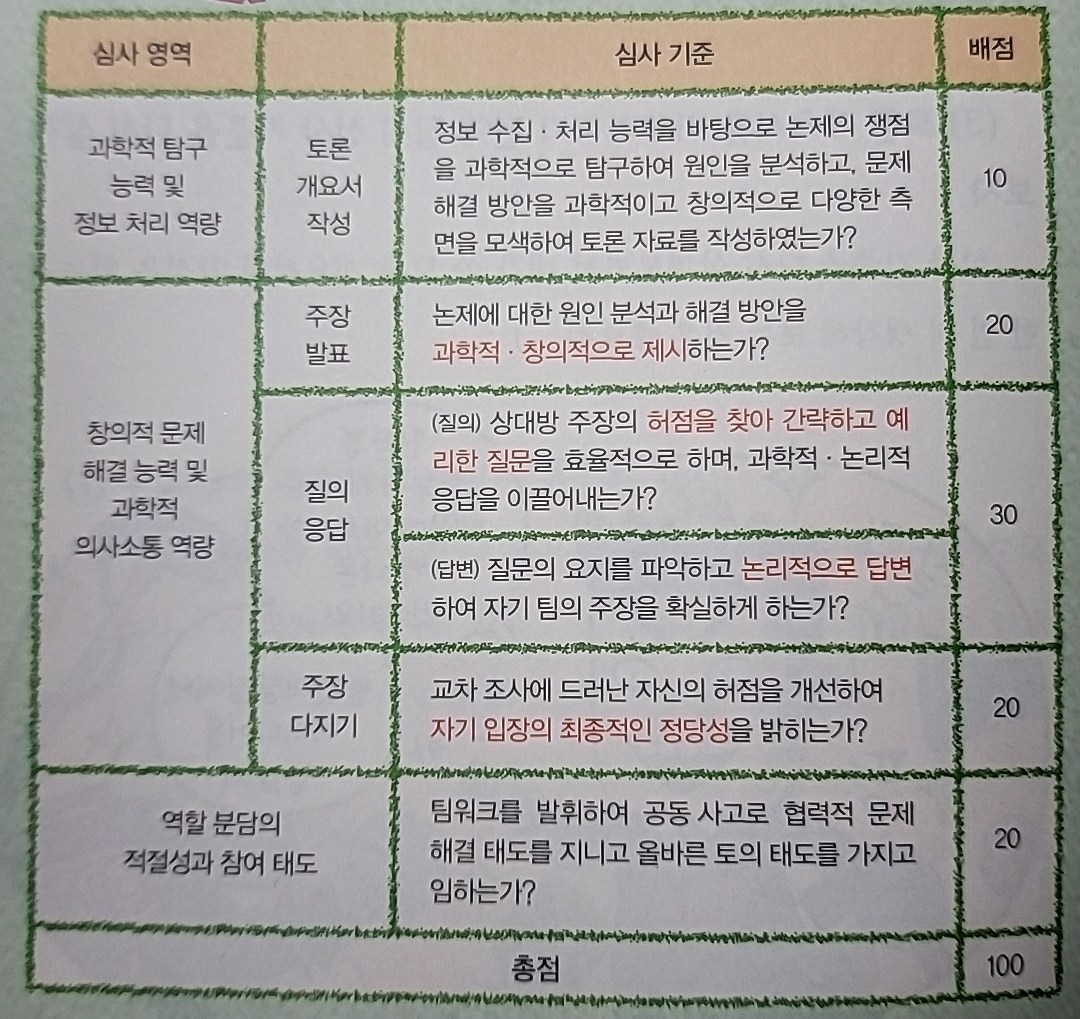 심사 영역
심사 기준
배점
과학적 탐구
능력 및
정보 처리 역량
토론
개요서
작성
정보 수집 · 처리 능력을 바탕으로 논제의 쟁점
을 과학적으로 탐구하여 원인을 분석하고, 문제
해결 방안을 과학적이고 창의적으로 다양한 측
면을 모색하여 토론 자료를 작성하였는가?
10
창의적 문제
해결 능력 및
과학적
의사소통 역량
주장
발표
논제에 대한 원인 분석과 해결 방안을
과학적 · 창의적으로 제시하는가?
20
질의
응답
(질의) 상대방 주장의 허점을 찾아 간략하고 예
리한 질문을 효율적으로 하며, 과학적 · 논리적
응답을 이끌어내는가?
(답변) 질문의 요지를 파악하고 논리적으로 답변
하여 자기 팀의 주장을 확실하게 하는가?
30
주장
다지기
교차 조사에 드러난 자신의 허점을 개선하여
자기 입장의 최종적인 정당성을 밝히는가?
20
역할 분담의
적절성과 참여 태도
팀워크를 발휘하여 공동 사고로 협력적 문제
해결 태도를 지니고 올바른 토의 태도를 가지고
임하는가?
20
총점
100